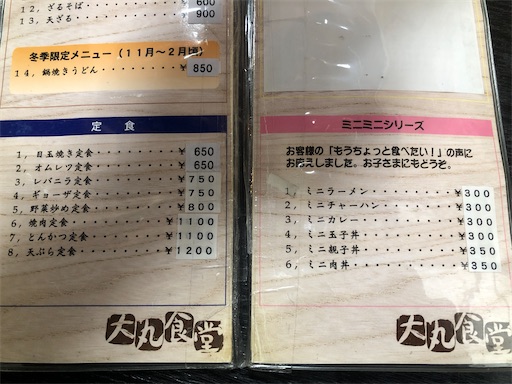 12, ざるそば ¥ 600
13, 天ざる ¥ 900
冬季限定メニュー（11月～2月頃）
14, 鍋焼きうどん・・・・・・・・・・¥ 850
定 食
1, 目玉焼き定食・・・・・・・・・・¥ 650
2, オムレツ定食・・・・・・・・・・¥ 650
3, レバニラ定食・・・・・・・・・・¥ 750
4, ギョーザ定食・・・・・・・・・・¥ 750
5, 野菜炒め定食・・・・・・・・・・¥ 800
6, 焼肉定食・・・・・・・・・・¥ 1100
7, とんかつ定食・・・・・・・・・・¥ 1100
8, 天ぷら定食・・・・・・・・・・¥ 1200
大丸食堂
ミニミニシリーズ
お客様の「もうちょっと食べたい！」の声に
お応えしました。お子さまにもどうぞ。
1, ミニラーメン・・・・・・・・・・¥ 300
2, ミニチャーハン・・・・・・・・・・¥ 300
3, ミニカレー・・・・・・・・・・¥ 300
4, ミニ玉子丼・・・・・・・・・・¥ 300
5, ミニ親子丼・・・・・・・・・・¥ 350
6, ミニ肉丼・・・・・・・・・・¥ 350
大丸食堂